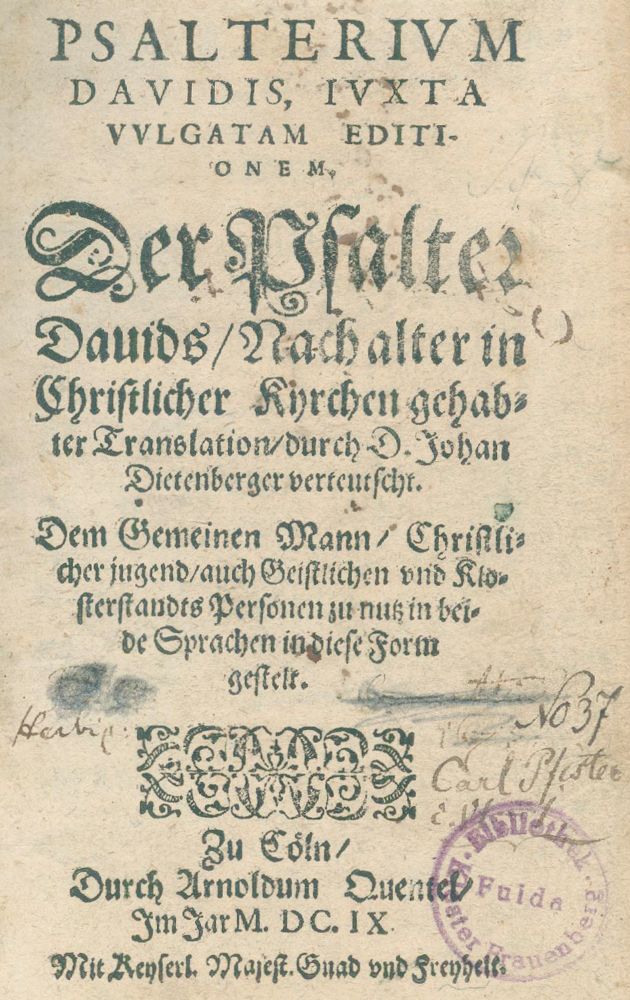 PSALTERIVM
DAVIDIS, IVXTA
VVLGATAM EDITI-
ONEM.
Der Pſalter
Dauids/Nach alter in
Chriſtlicher Kyrchen gehab-
ter Translation/durch D. Johan
Dietenberger verteutſcht.
Dem Gemeinen Mann/ Chriſtli-
cher jugend/auch Geiſtlichen vnd Klo-
ſterſtandts Perſonen zu nutz in bei-
de Sprachen in dieſe Form
geſtelt.
No 37
Herbip.
Carl Pfister
Zu Cöln/
Durch Arnoldum Quentel/
Im Jar M. DC. IX
Mit Keyſerl. Majeſt. Gnad vnd Freyheit.
Bibliothek
Fulda
Frauenberg